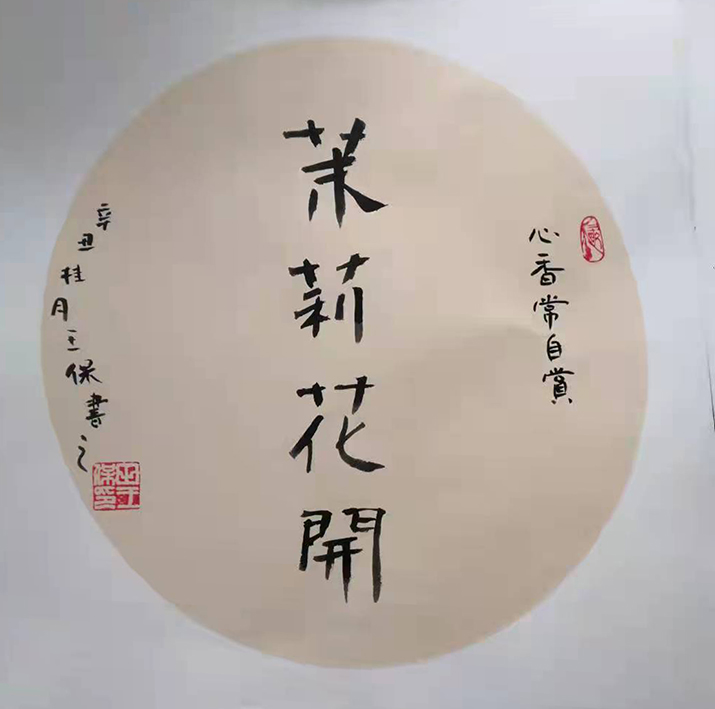 心香常自賞
茉莉花開
辛丑桂月王保書之